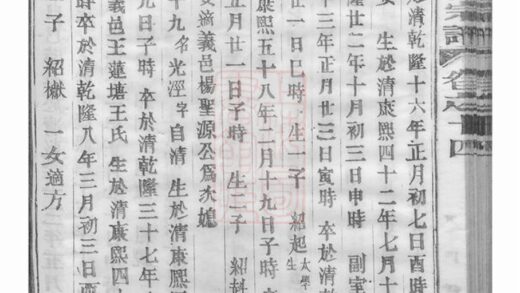 宗譜 卷之十四
於清乾隆十六年正月初七日酉時
安 生於清康熙四十二年七月十
隆廿二年十月初三日申時 副室
十三年正月廿三日寅時 卒於清乾
廿一日巳時 生一子 紹起 大學生
康熙五十八年二月十九日子時
正月廿一日子時 生二子 紹科
女適義邑楊聖源公為次媳
十九 名光涇 字自清 生於清康熙
元日子時 卒於清乾隆三十七年
義邑王蓮塘王氏 生於清康熙四
時卒於清乾隆八年三月初三日酉
子 紹嶽 一女適方